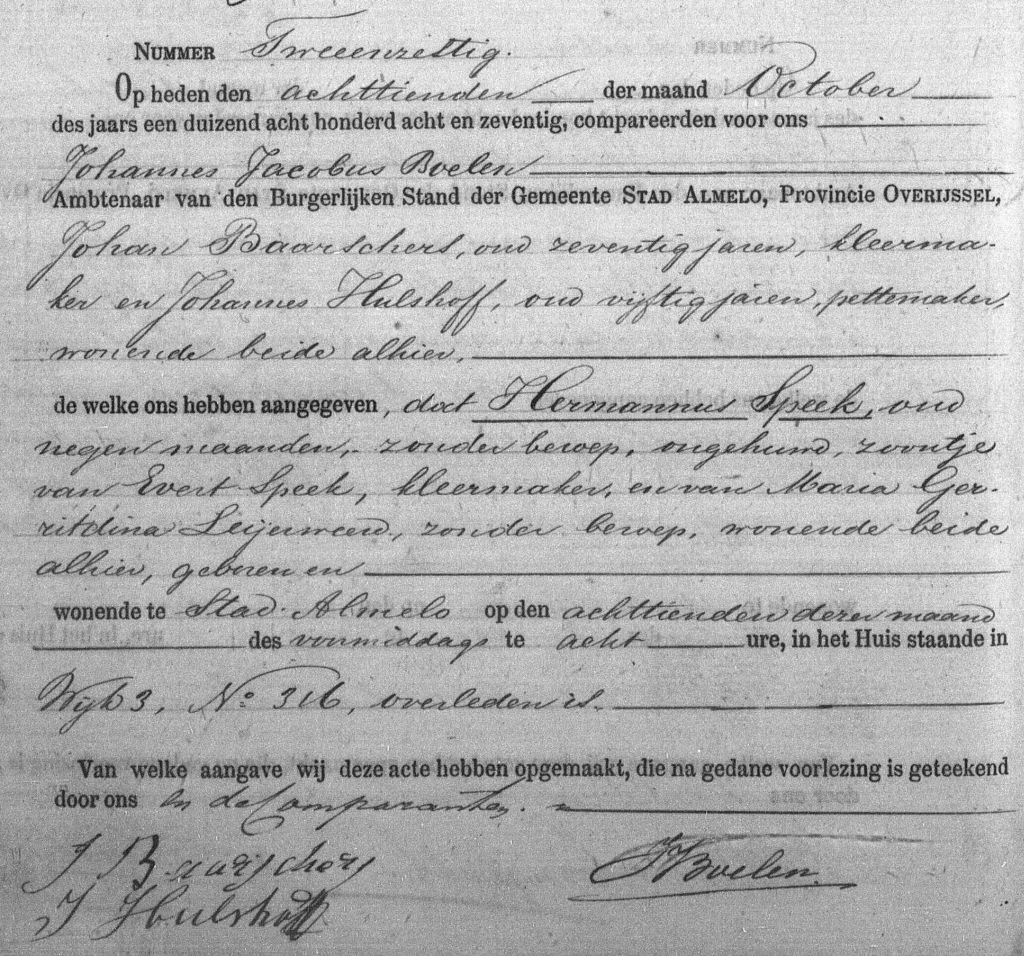 NUMMER Tweeenzestig.
Op heden den achttienden der maand October
des jaars een duizend acht honderd acht en zeventig, compareerden voor ons
Johannes Jacobus Boelen
Ambtenaar van den Burgerlijken Stand der Gemeente STAD ALMELO, Provincie OVERIJSSEL,
Johan Baarschers, oud zeventig jaren, kleerma-
ker en Johannes Hulshoff, oud vijftig jaren, pettemaker,
wonende beide alhier,
de welke ons hebben aangegeven, dat Hermannus Speek, oud
negen maanden, zonder beroep, ongehuwd, zoontje
van Evert Speek, kleermaker, en van Maria Ger-
ritdina Leijerweerd, zonder beroep, wonende beide
alhier, geboren en
wonende te Stad Almelo op den achttienden dezer maand
des voormiddags te acht ure, in het Huis staande in
Wijk 3, No 316, overleden is.
Van welke aangave wij deze acte hebben opgemaakt, die na gedane voorlezing is geteekend
door ons en de Comparanten.
J Baarschers
JJBoelen
J Hulshoff